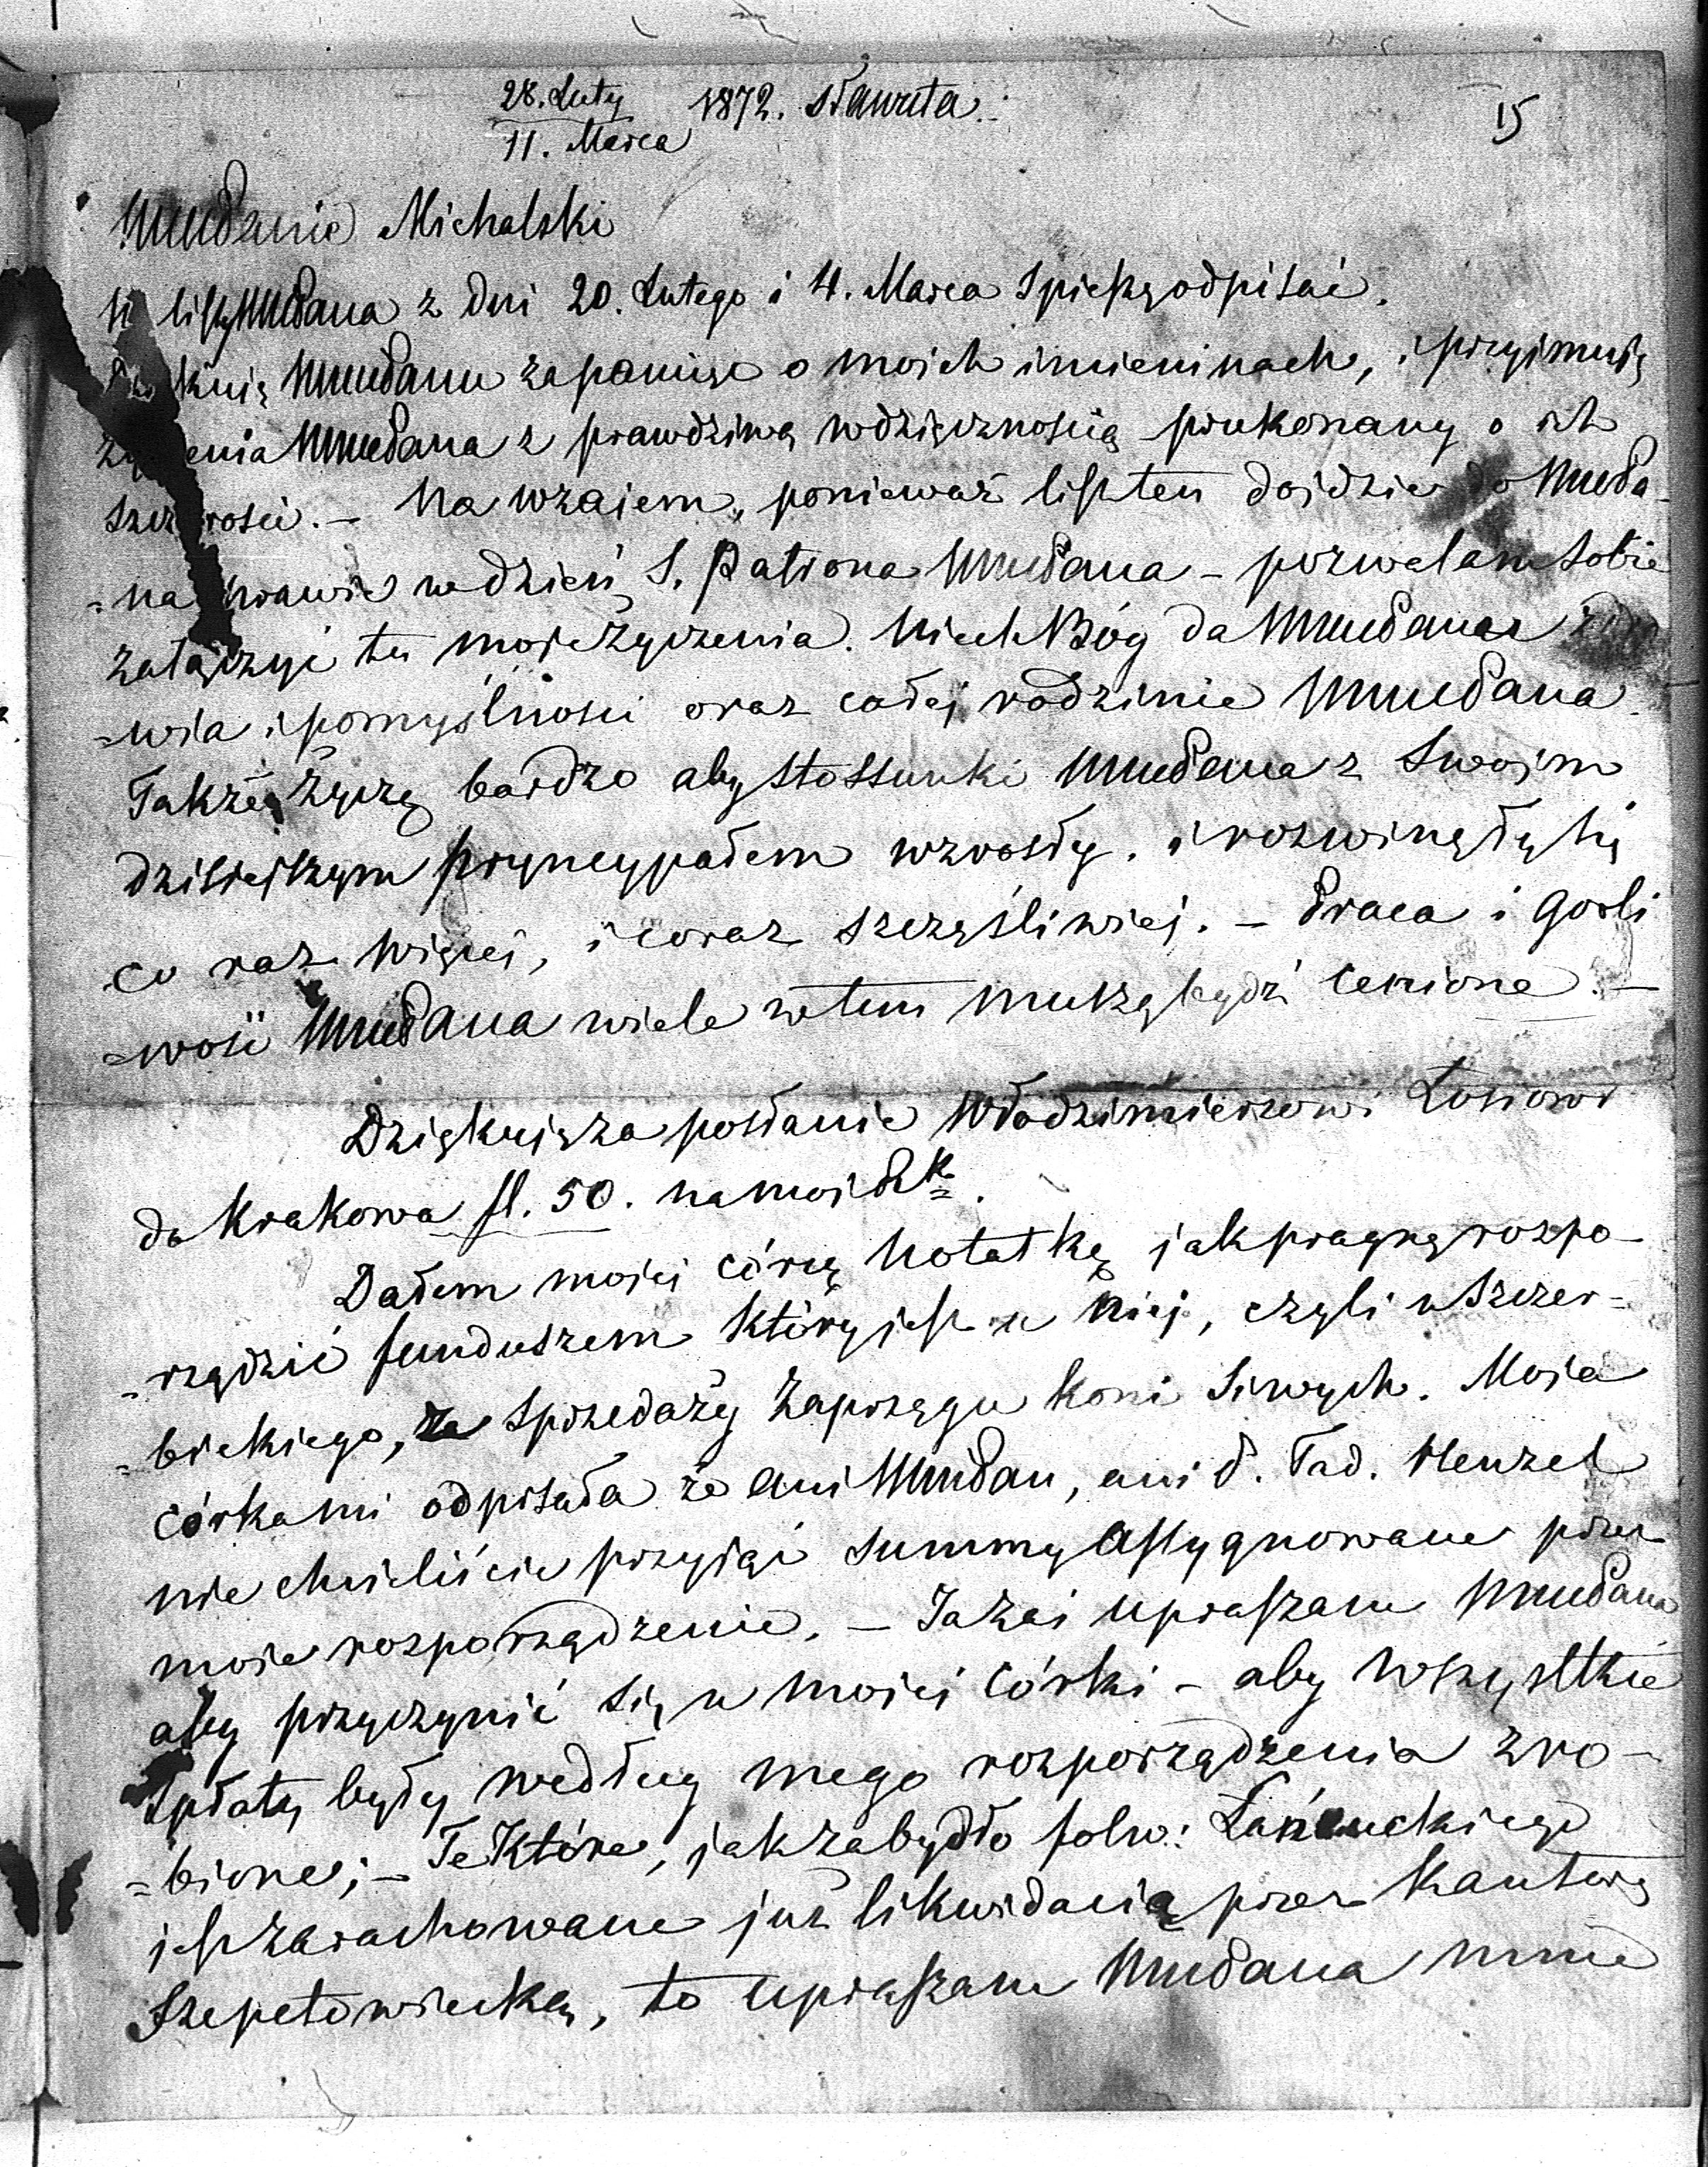 28. Luty 1872. Sławuta. 15
11. Marca
WMudanie Michalski
listy WMudana z dni 20. Lutego i 4. Marca Spieszę odpisać.
WMudanu za pamięć o moich imieninach, i przyjmuję
życzenia WMudana z prawdziwą wdzięcznością przekonany o ich
szczerości. – Na wzajem, ponieważ list ten dojdzie do WMuda-
=na prawie w dzień S. Patrona WMudana – pozwalam Sobie
załączyć tu moje życzenia. Niech Bóg da WMudana zdro
=wia i pomyślności oraz całej rodzinie WMudana.
Także życzę bardzo aby Stossunki WMudana z Swojm
dzisiejszym pryncypałem wzrosły. i rozwinęły się
co raz więcej, i coraz szczęśliwiej. – Praca i Gorli
=wość WMudana wiele w tem muszą bydź cenione. –
Dziękuję za posłanie Włodzimierzowi Łosiowi
do Krakowa fl. 50. na mój
Dałem mojej córcę Notatkę jak pragnę rozpo-
=rządzić funduszem który jest u niej, czyli u Szczer=
=bickiego, za Sprzedaży Zaprzęgu koni Siwych. Moja
córka mi odpisała że ani WMudan, ani P. Tad. Henzel
nie chcieliście przyjąć Summy Assygnowane przez
moje rozporządzenie. – Ja zaś upraszam WMudana
aby przyczynić się u mojej Córki – aby wszystkie
Spłaty były według mego rozporządzenia zro-
=bione; – Te które, jak za bydło folw: Łańcuckiego
jest zarachowane już likwidacią przez Kantorę
Szepetowiecką, to upraszam WMudana mnie